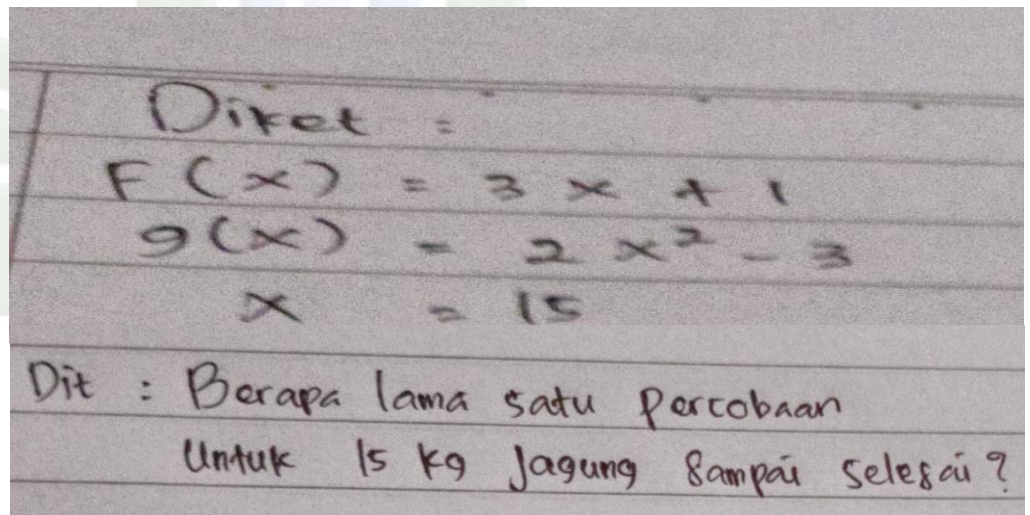 Diket :
F(x) = 3x + 1
g(x) = 2x² - 3
x = 15
Dit : Berapa lama satu Percobaan
Untuk 15 kg Jagung Sampai Selesai?